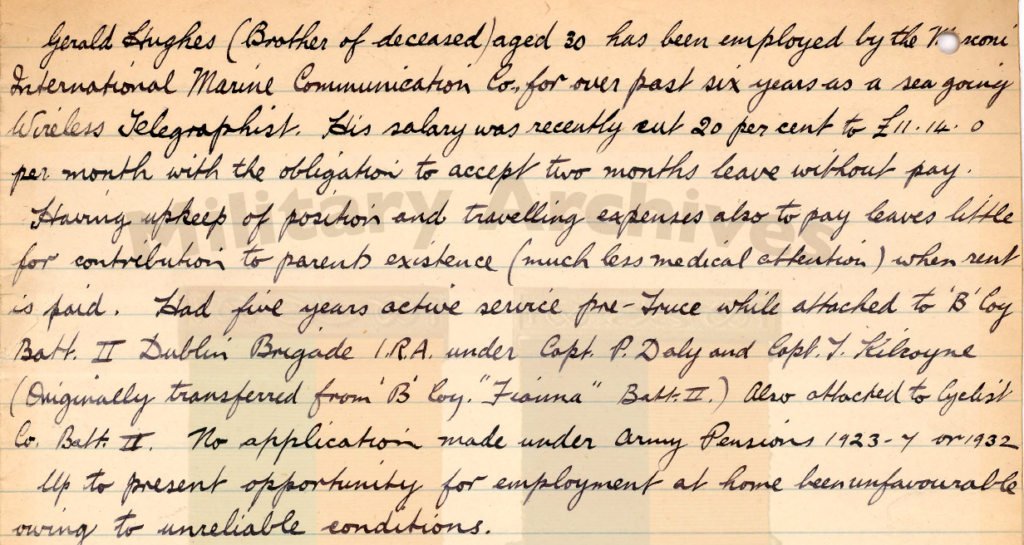 Gerald Hughes (Brother of deceased) aged 30 has been employed by the Marconi
International Marine Communication Co., for over past six years as a sea going
Wireless Telegraphist. His salary was recently cut 20 per cent to £11.14.0
per month with the obligation to accept two months leave without pay.
Having upkeep of position and travelling expenses also to pay leaves little
for contribution to parents existence (much less medical attention) when rent
is paid. Had five years active service pre-Truce while attached to 'B' Coy
Batt. II Dublin Brigade I.R.A. under Capt. P. Daly and Capt. T. Kilcoyne
(Originally transferred from 'B' Coy. "Fianna" Batt. II.) Also attached to Cyclist
Co. Batt. II. No application made under Army Pensions 1923-7 or 1932
Up to present opportunity for employment at home been unfavourable
owing to unreliable conditions.
Military Archives